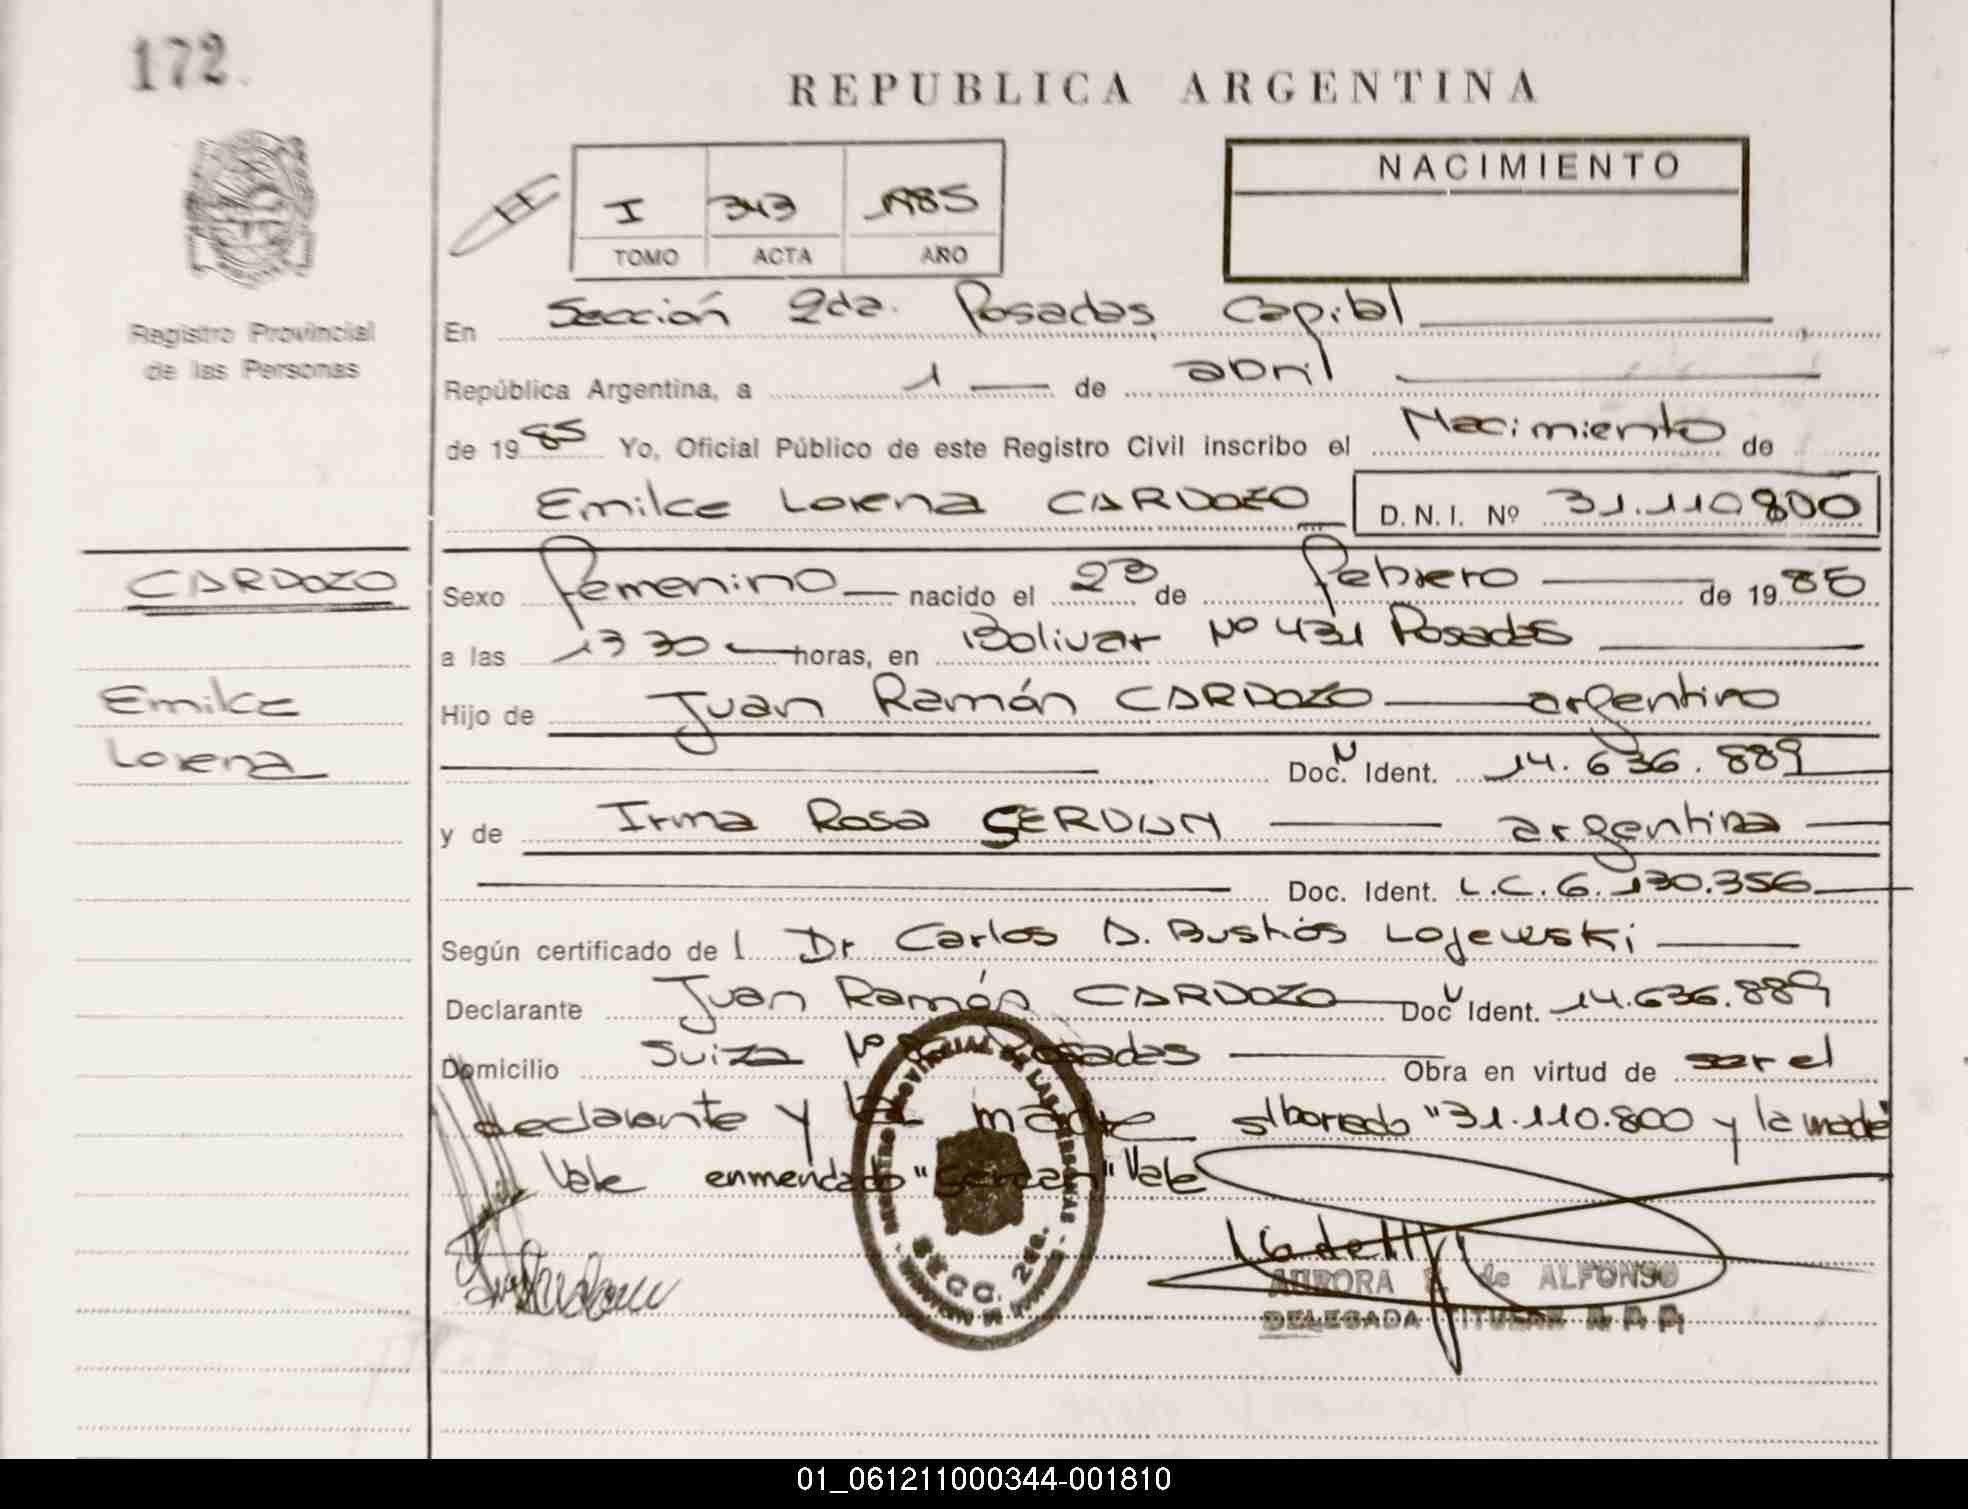 172.
REPUBLICA ARGENTINA
NACIMIENTO
I 343 1985
TOMO ACTA AÑO
Registro Provincial
de las Personas
En Sección 2da. Posadas Capital
República Argentina, a 1 de abril
de 1985 Yo, Oficial Público de este Registro Civil inscribo el Nacimiento de
Emilce Lorena CARDOZO D.N.I. Nº 31.110800
CARDOZO
Emilce
Lorena
Sexo femenino nacido el 23 de febrero de 1985
a las 13 30 horas, en Bolivar Nº 431 Posadas
Hijo de Juan Ramón CARDOZO argentino
Doc. Ident. 14.636.889
y de Irma Rosa argentina
Doc. Ident. L.C.6.130.356
Según certificado de l Dr Carlos A. Bustos Lojewski
Declarante Juan Ramón CARDOZO Doc Ident. 14.636.889
Domicilio Suiza Nº Posadas Obra en virtud de ser el
declarante y la madre s/borrado "31.110.800 y la madre"
Vale enmendado Vale
REGISTRO PROVINCIAL DE LAS PERSONAS
SECC. 2da.
AURORA de ALFONSO
DELEGADA TITULAR
01_061211000344-001810